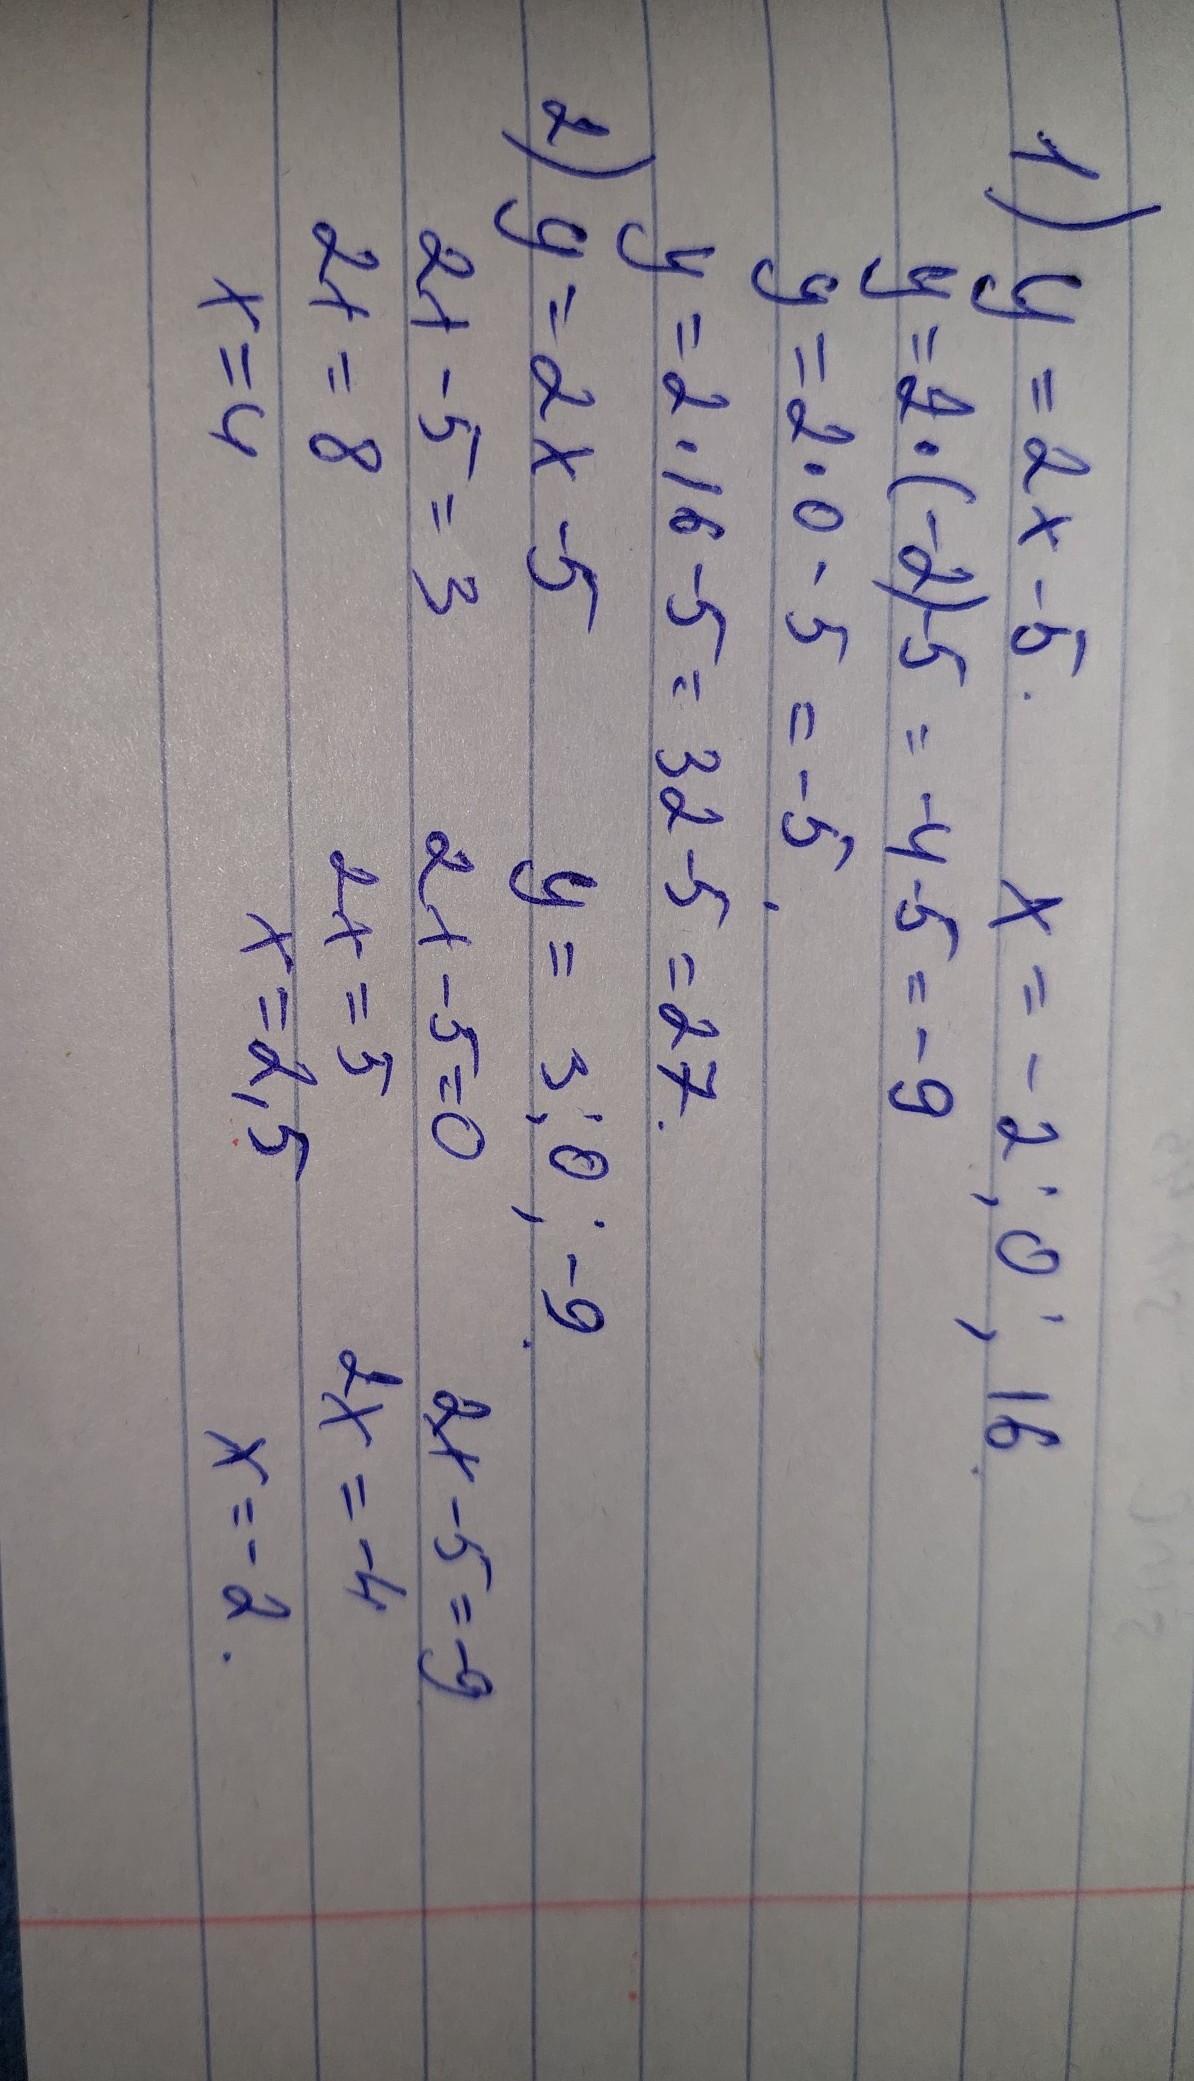 1) y = 2x - 5. x = -2; 0; 16.
y = 2·(-2)-5 = -4-5 = -9
y = 2·0-5 = -5.
y = 2·16-5 = 32-5 = 27.
2) y = 2x - 5 y = 3; 0; -9.
2x - 5 = 3 2x - 5 = 0 2x - 5 = -9
2x = 8 2x = 5 2x = -4
x = 4 x = 2,5 x = -2.